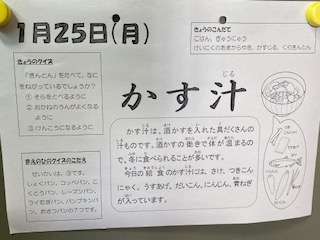 1月25日(月)
きょうのこんだて
ごはん、ぎゅうにゅう
けいにくのおまからやき、かすじる、くりきんとん
きょうのクイズ
「きんとん」をたべて、なに
をねがっているでしょうか?
① そらをとべるように
② おかねのうんがよくなる
ように
③ けんこうになるように
かす汁
じる
きんようびのクイズのこたえ
せいかいは、③です。
しょくパン、コッペパン、こ
くとうパン、レーズンパン、
ライむぎパン、パンプキンパ
ン、おさつパンの7つです。
かす汁は、酒かすを入れた具だくさんの
汁ものです。酒かすの働きで体が温まるの
で、冬に食べられることが多いです。
今日の給食のかす汁には、さけ、つきこん
にゃく、うすあげ、だいこん、にんじん、青ねぎ
が入っています。